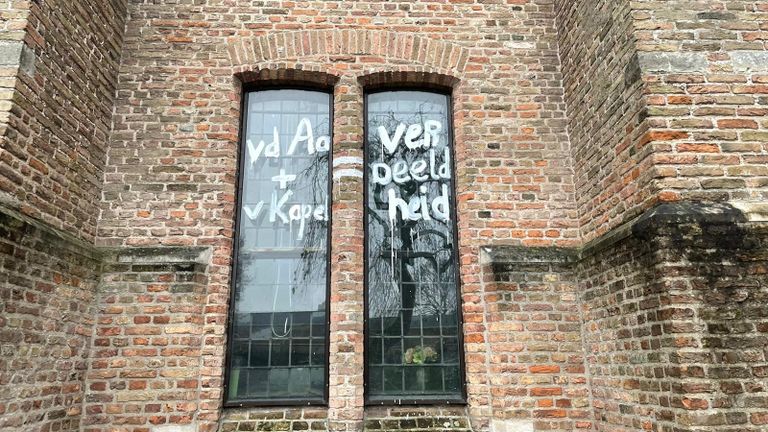 vd Aa
+
v Kapel
=
VeR
Deeld
heid